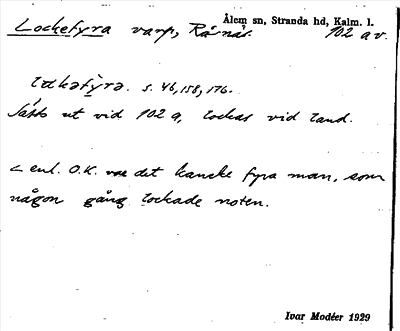 Ålem sn, Stranda hd, Kalm. l.
Lockefyra varp, Rånäs. 102 av.
låkəfỳrə. s. 46, 158, 176.
Sätts ut vid 102 a, lockas vid land.
< enl. O.K. var det kanske fyra man, som
någon gång lockade noten.
Ivar Modéer 1929